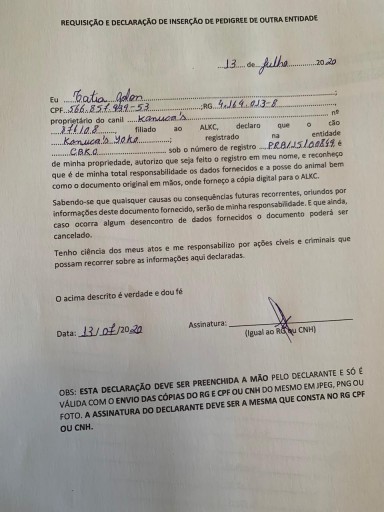 REQUISIÇÃO E DECLARAÇÃO DE INSERÇÃO DE PEDIGREE DE OUTRA ENTIDADE
13 de Julho 2020
Eu Katia
CPF 566.857.949-53 ;RG 4.164.013-8 ;
proprietário do canil Kanuca's nº
87610.8 filiado ao ALKC, declaro que o cão
Kanuca's Yoko ; registrado na entidade
CBKO sob o número de registro PRB/JS/00869 é
de minha propriedade, autorizo que seja feito o registro em meu nome, e reconheço
que é de minha total responsabilidade os dados fornecidos e a posse do animal bem
como o documento original em mãos, onde forneço a cópia digital para o ALKC.
Sabendo-se que quaisquer causas ou consequências futuras recorrentes, oriundos por
informações deste documento fornecido, serão de minha responsabilidade. E que ainda,
caso ocorra algum desencontro de dados fornecidos o documento poderá ser
cancelado.
Tenho ciência dos meus atos e me responsabilizo por ações cíveis e criminais que
possam recorrer sobre as informações aqui declaradas.
O acima descrito é verdade e dou fé
Data: 13/07/2020 Assinatura:
(Igual ao RG ou CNH)
OBS: ESTA DECLARAÇÃO DEVE SER PREENCHIDA A MÃO PELO DECLARANTE E SÓ É
VÁLIDA COM O ENVIO DAS CÓPIAS DO RG E CPF OU CNH DO MESMO EM JPEG, PNG OU
FOTO. A ASSINATURA DO DECLARANTE DEVE SER A MESMA QUE CONSTA NO RG CPF
OU CNH.